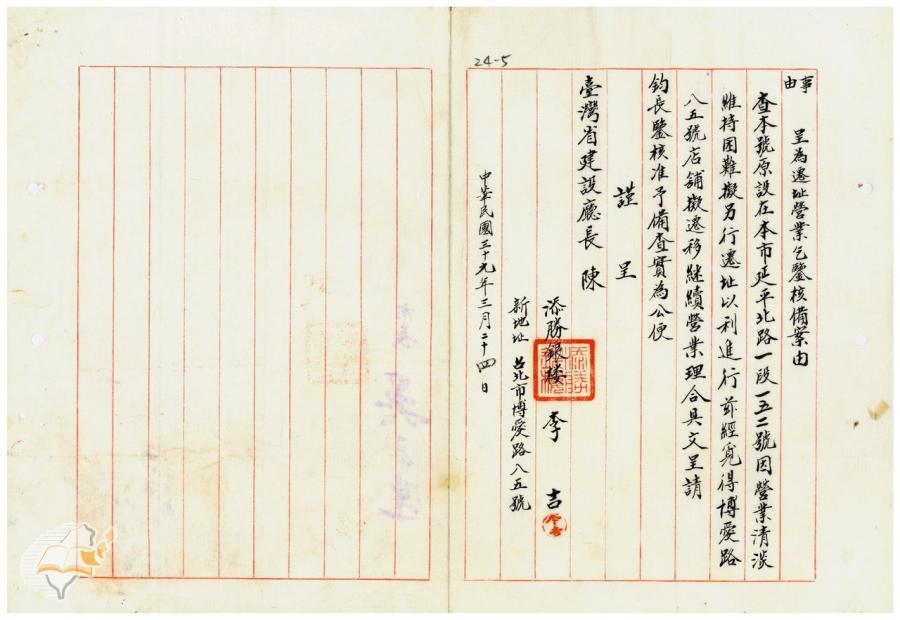 24-5
事由
呈為遷址營業乞鑒核備案由
查本號原設在本市延平北路一段一五二號因營業清淡
維持困難擬另行遷址以利進行茲經覓得博愛路
八五號店舖擬遷移繼續營業理合具文呈請
鈞長鑒核准予備查實為公便
謹呈
臺灣省建設廳長 陳
添勝銀樓 李 吉
新地址 台北市博愛路八五號
中華民國三十九年三月二十四日